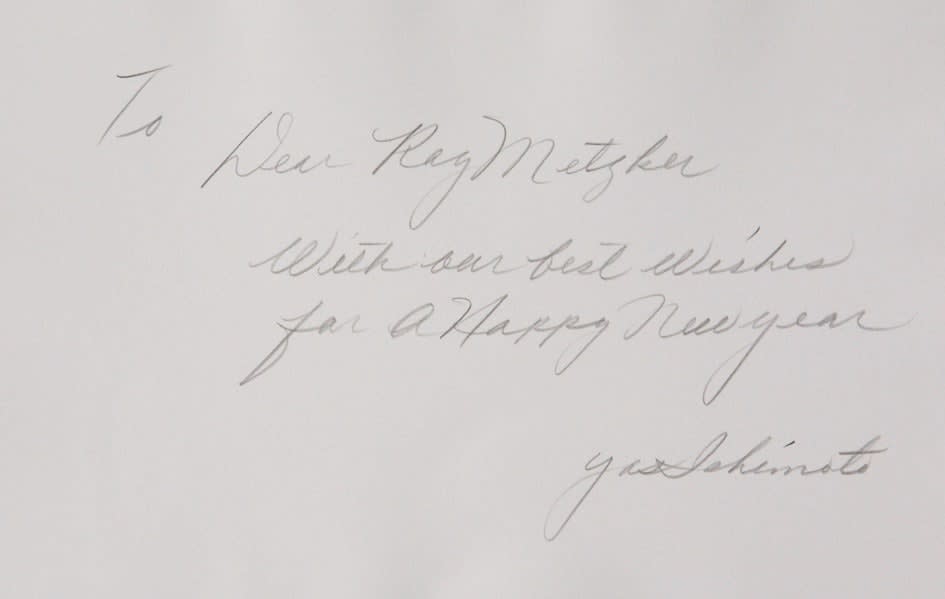 To
Dear Ray Metzker
With our best wishes
for A Happy New year
yas Ishimoto